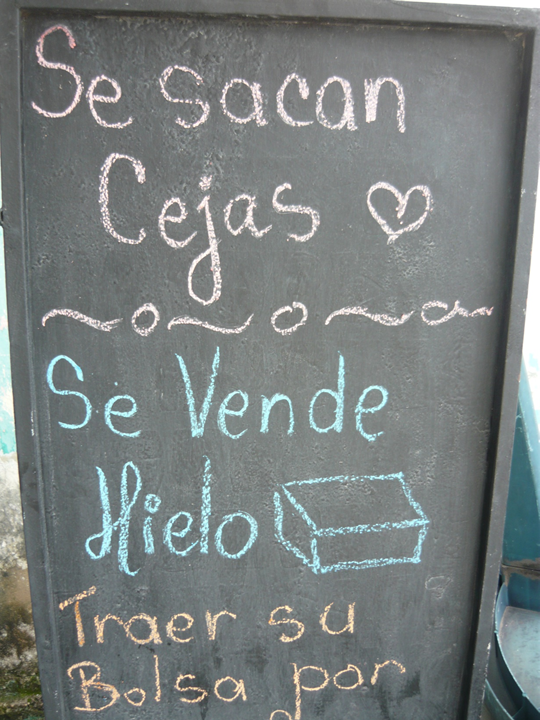 Se sacan
Cejas
Se Vende
Hielo
Traer su
Bolsa por